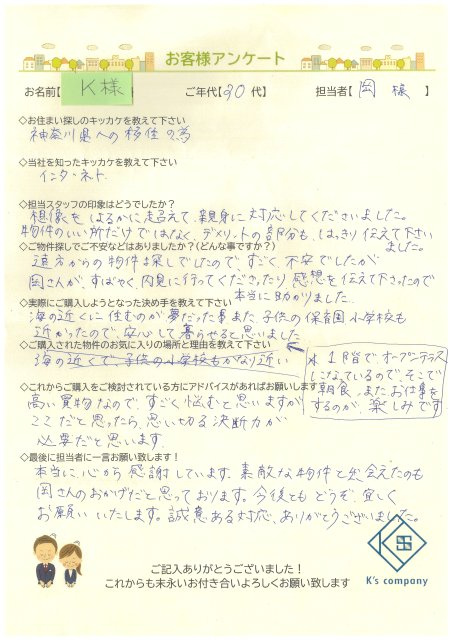 お客様アンケート
お名前【 K様 】 ご年代【30代】 担当者【 岡 様 】
◇お住まい探しのキッカケを教えて下さい
神奈川県への移住の為
◇当社を知ったキッカケを教えて下さい
インターネット
◇担当スタッフの印象はどうでしたか？
想像をはるかに超えて、親身に対応してくださいました。
物件のいい所だけではなく、デメリットの部分も、はっきり伝えて下さい
ました。
◇ご物件探しでご不安などはありましたか？（どんな事ですか？）
遠方からの物件探しでしたので、すごく不安でしたが
岡さんが、すばやく内見に行ってくださったり感想を伝えて下さったので
本当に助かりました
◇実際にご購入しようとなった決め手を教えて下さい
海の近くに住むのが夢だった事また子供の保育園小学校も
近かったので、安心して暮らせると思いました
◇ご購入された物件のお気に入りの場所と理由を教えて下さい
海の近くで、子供の小学校もかなり近い
※1階でオープンテラス
になっているので、そこで
朝食、またお仕事を
するのが、楽しみです
◇これからご購入をご検討されている方にアドバイスがあればお願いします
高い買物なので、すごく悩むと思いますが
ここだと思ったら、思い切る決断力が
必要だと思います
◇最後に担当者に一言お願い致します！
本当に心から感謝しています。素敵な物件と出会えたのも
岡さんのおかげだと思っております。今後ともどうぞ、宜しく
お願いいたします。誠意ある対応、ありがとうございました。
ご記入ありがとうございました！
これからも末永いお付き合いよろしくお願い致します
K's company